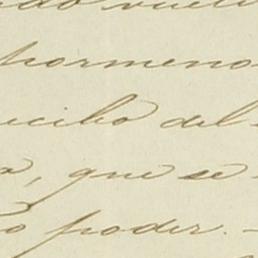 vuelt
pormeno
ecibo del
a, que se
o poder. -